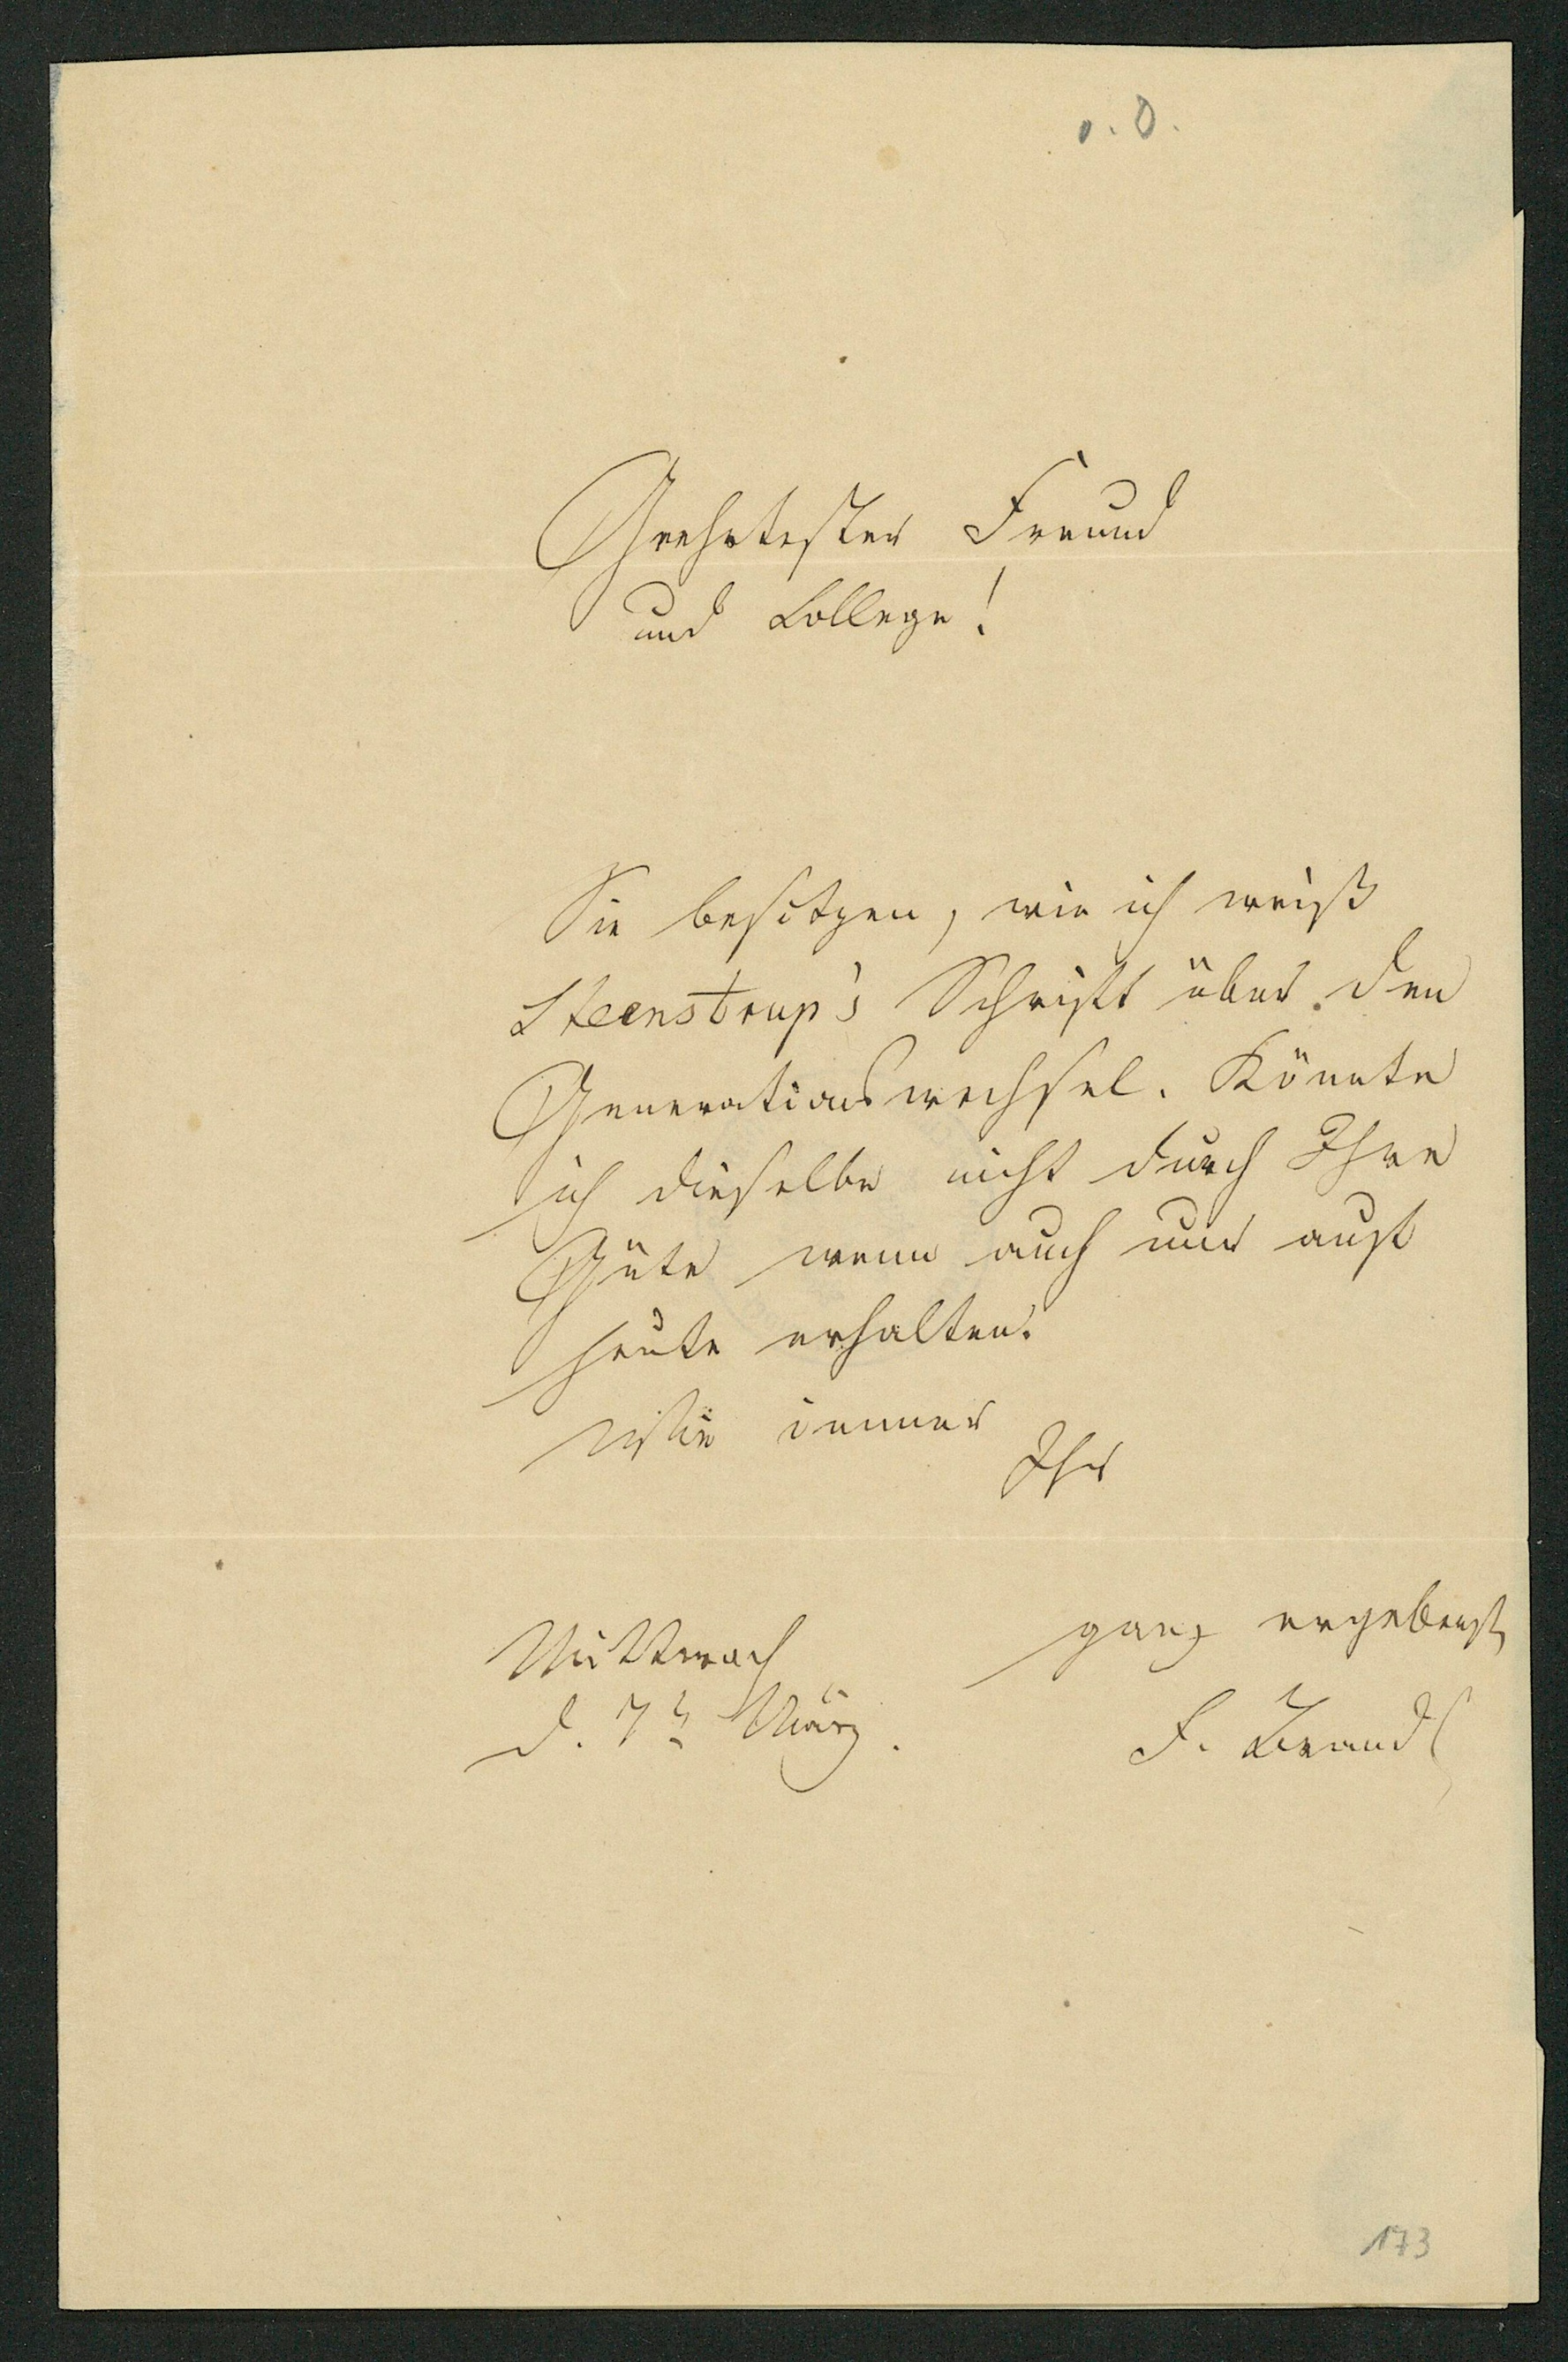 o. D.
Geehrtester Freund
und College!
Sie besitzen, wie ich weiß
Steenstrup's Schrift über den
Generationswechsel. Könnte
ich dieselbe nicht durch Ihre
Güte wenn auch nur auf
heute erhalten.
Wie immer
Ihr
ganz ergebenst
Mittwoch
d. 7t März.
F. Brandt
173